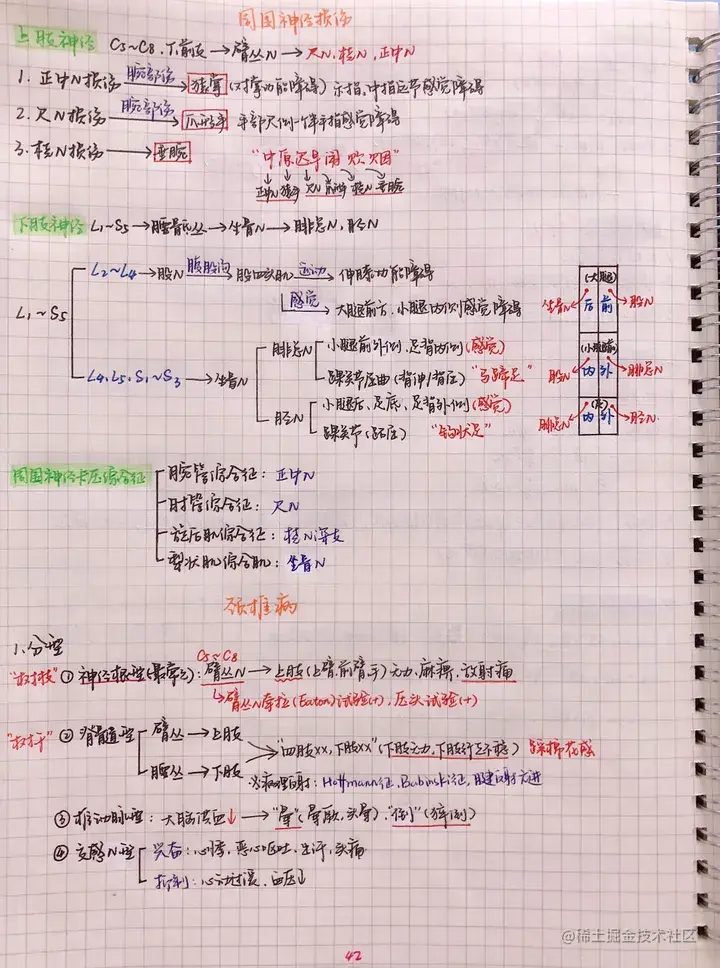 周围神经损伤
上肢神经 C5~C8.T1前支→臂丛N→尺N.桡N,正中N
1. 正中N损伤 腕部伤→猿掌(对掌功能障碍) 示指,中指远节感觉障碍
2. 尺N损伤 腕部伤→爪形手 手部尺侧一个半手指感觉障碍
3. 桡N损伤→垂腕
正中N 猿手 尺N 爪形手 桡N 垂腕
下肢神经 L1~S5→腰骶丛→坐骨N→腓总N,胫N
L1~S5
L2~L4→股N 腹股沟→股四头肌 运动→伸膝功能障碍
感觉→大腿前方,小腿内侧感觉障碍
L4.L5.S1~S3→坐骨N
腓总N 小腿前外侧,足背内侧(感觉)
踝关节屈曲(背伸/背屈) "马蹄足"
胫N 小腿后、足底、足背外侧(感觉)
踝关节(跖屈) "钩状足"
(大腿)
坐骨N 后 前 股N
(小腿前)
股N 内 外 腓总N
(足)
腓总N 内 外 胫N
周围神经卡压综合征
腕管综合征:正中N
肘管综合征:尺N
旋后肌综合征:桡N深支
梨状肌综合肌:坐骨N
颈椎病
1.分型
C5~C8
①神经根型(最常见):臂丛N→上肢(上臂前臂手)无力.麻痹.放射痛
臂丛N牵拉(Eaton)试验(+),压头试验(+)
②脊髓型
臂丛→上肢
腰丛→下肢
"四肢xx,下肢xx"(下肢无力,下肢行走不稳) 踩棉花感
病理反射:Hoffmann征,Babinski征,腱反射亢进
③椎动脉型:大脑供血↓→"晕"(晕厥,头晕)."倒"(猝倒)
④交感N型
兴奋:心悸,恶心呕吐,出汗,头痛
抑制:心动过缓,血压↓
42
@稀土掘金技术社区